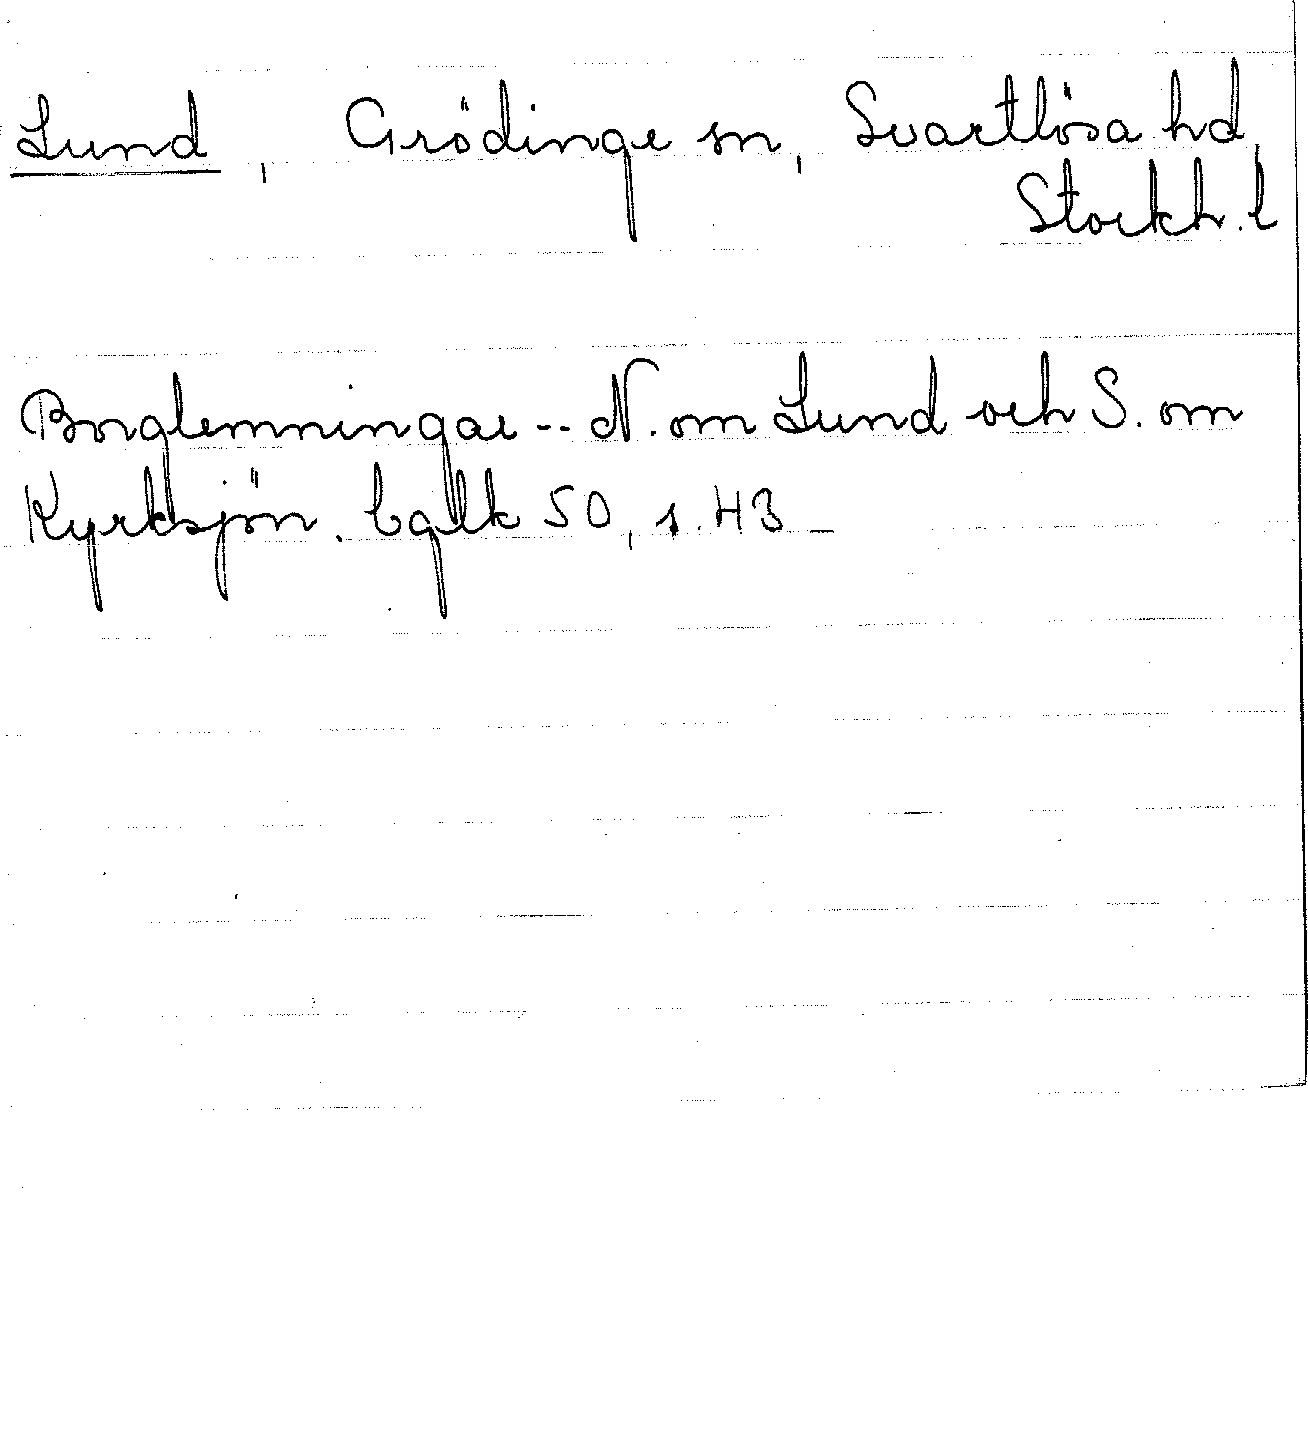 Lund, Grödinge sn, Svartlösa hd,
Stockh. l
Borglemningar -- N. om Lund och S. om
Kyrksjön. bqlk 50, s. 43 _